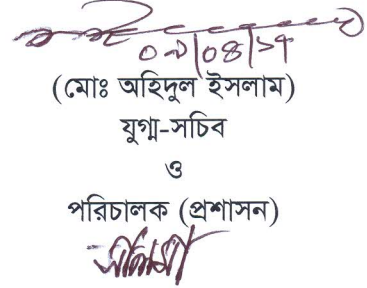 ০৯/০৪/১৭
(মোঃ অহিদুল ইসলাম)
যুগ্ম-সচিব
ও
পরিচালক (প্রশাসন)